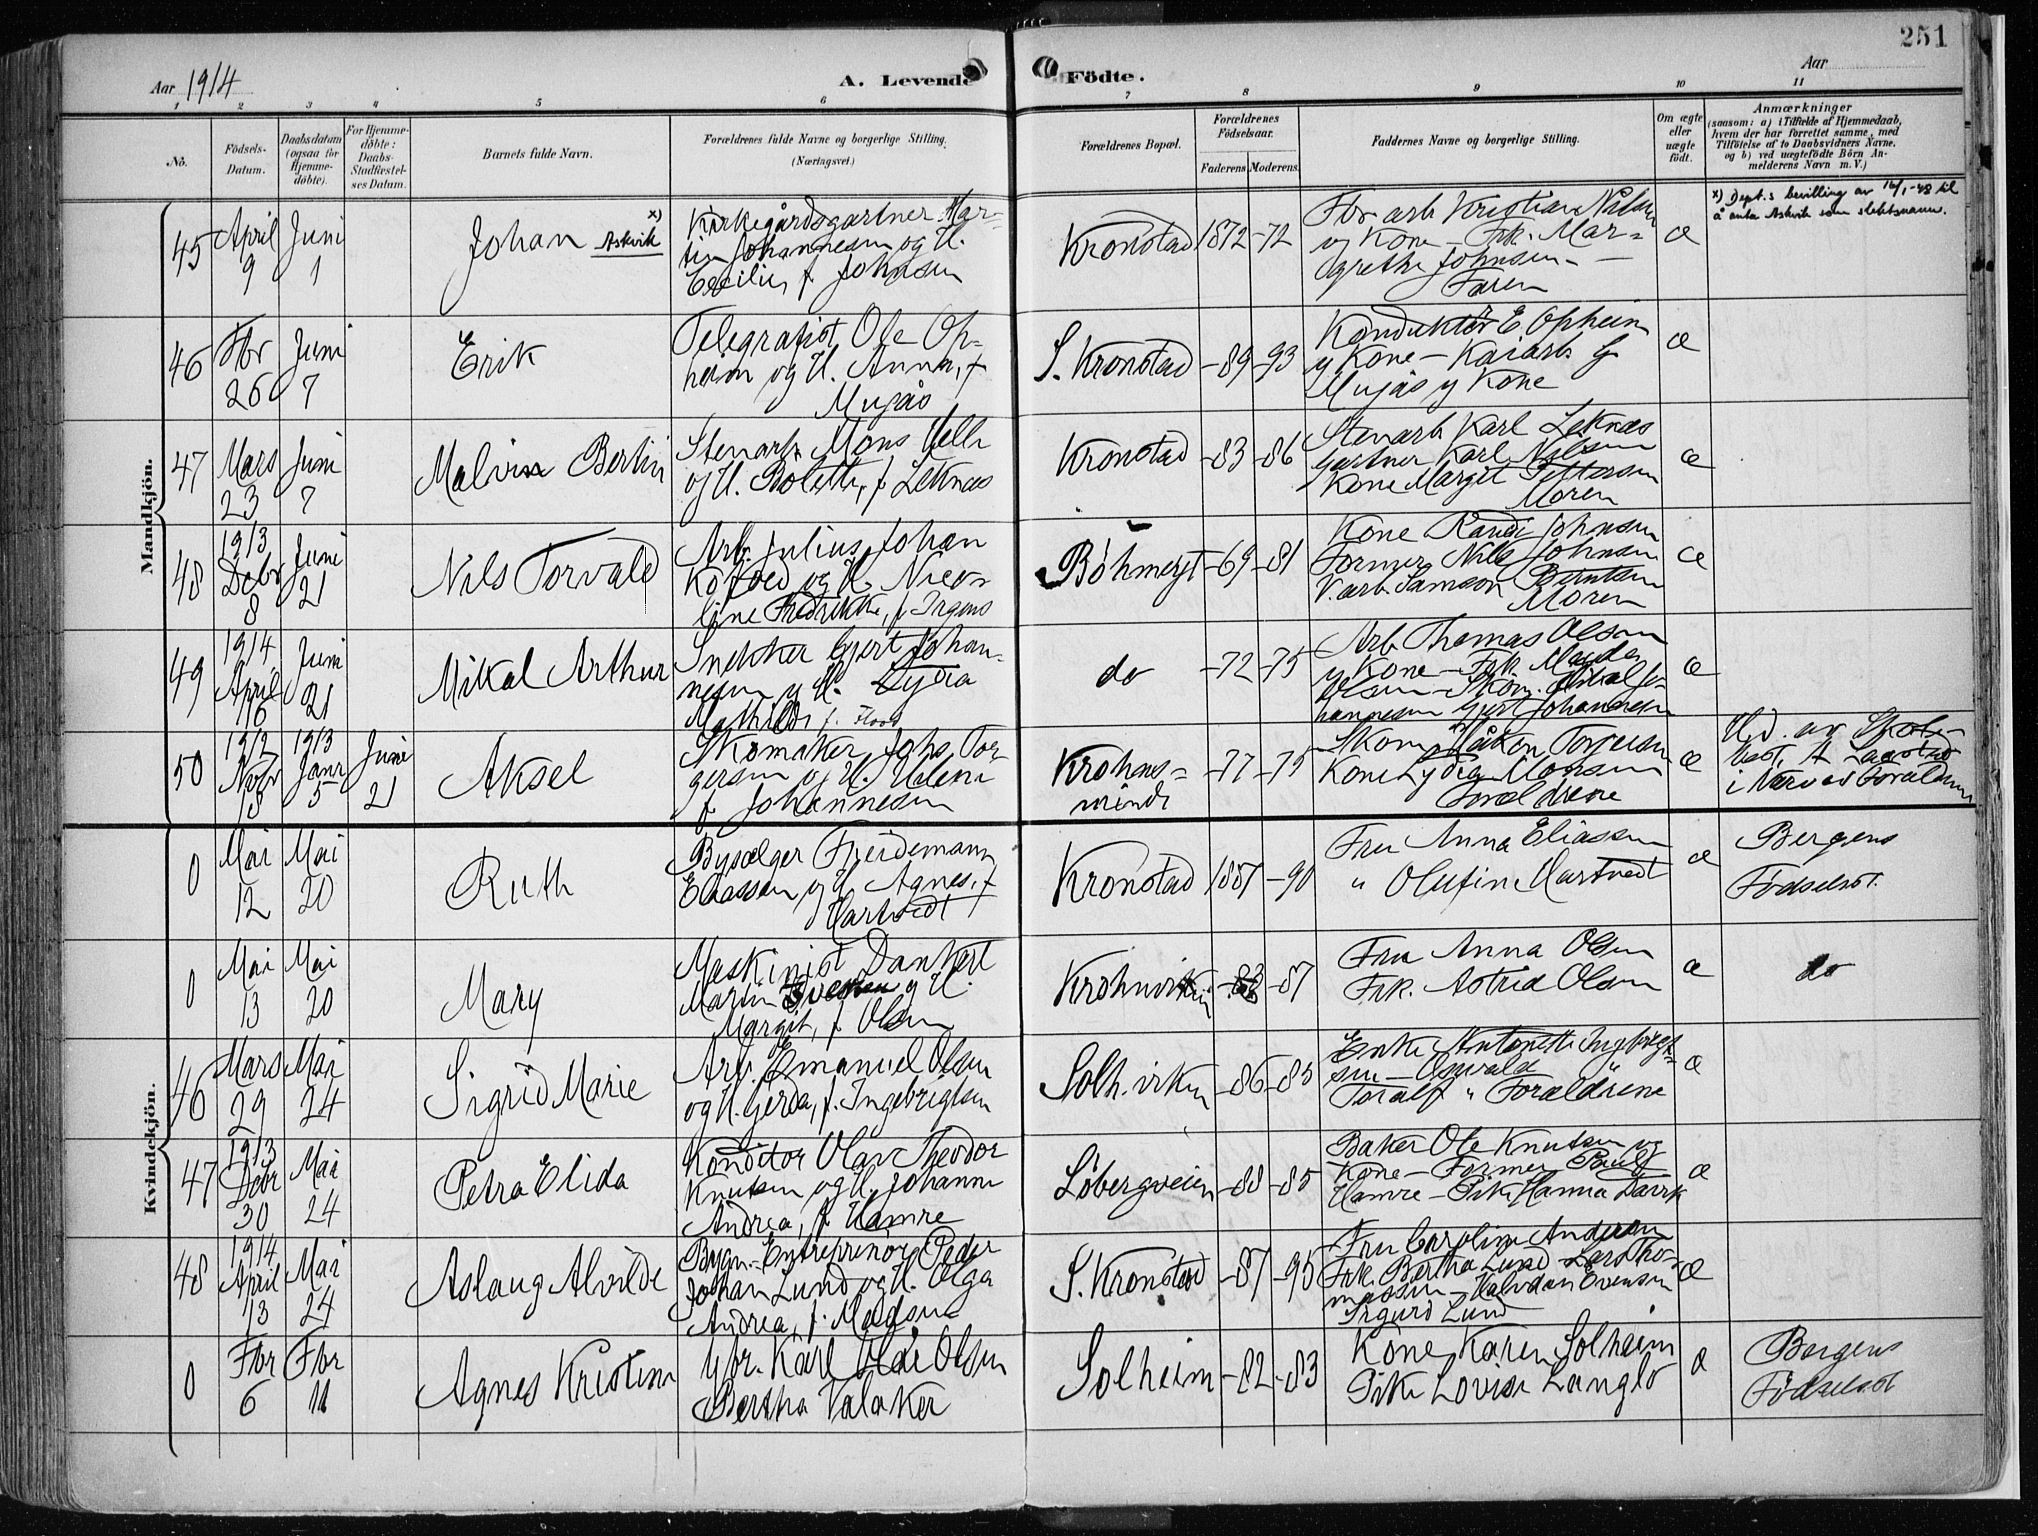 251
Aar 1914
A. Levende Födte.
Aar
1 2 3 4 5 6 7 8 9 10 11
No.
Födsels-Datum.
Daabsdatum (ogsaa for Hjemme-döbte).
For Hjemme-döbte: Daabs-Stadfæstel-ses Datum.
Barnets fulde Navn.
Forældrenes fulde Navne og borgerlige Stilling. (Næringsvei.)
Forældrenes Bopæl.
Forældrenes Födselsaar.
Faderens. Moderens.
Faddernes Navne og borgerlige Stilling.
Om ægte eller uægte födt.
Anmærkninger
(saasom: a) i Tilfælde af Hjemmedaab, hvem der har forrettet samme, med Tilföielse af to Daabsvidners Navne, og b) ved uægtefödte Börn An-melderens Navn m. V.)
Mandkjön.
45 April 9 Juni 1
Johan Askvik x)
Kirkegårdsgartner Mar-
tin Johannesen og H.
Cecilie, f. Johnsen
Kronstad 1872 -72
Fbr.arb. Kristian Nilsen
og Kone - Frk. Mar-
grethe Johnsen -
Faren
æ
x) Dept.s bevilling av 16/1-48 til
å anta Askvik som slektsnavn.
46 Fbr 26 Juni 7
Erik
Telegrafist Ole Op-
heim og H. Anna, f.
Mujås
S. Kronstad -89 -93
Konduktør E Opheim
og Kone - Kaiarb. G
Mujås og Kone
æ
47 Mars 23 Juni 7
Malvin Bertin
Stenarb. Mons Helle
og H. Bolette, f. Leknes
Kronstad -83 -86
Stenarb Karl Leknes
Gartner Karl Nilsen
Kone Margit Pettersen
Moren
æ
48 1913 Debr 8 Juni 21
Nils Torvald
Arb. Julius Johan
Kofoed og H. Nico-
line Fredrikke, f. Irgens
Bøhmergt -69 -81
Kone Randi Johnsen
Former Nils Johnsen
V.arb. Samson Berntsen
Moren
æ
49 1914 April 16 Juni 21
Mikal Arthur
Snekker Gjert Johan-
nesen og H. Lydia
Mathilde f. Floos
do -72 -75
Arb Thomas Olsen
og Kone - Frk. Magda
Olsen - Skom. Mikal Jo-
hannesen Gjert Johannesen
æ
50 1912 Novbr 8 1913 Janr 5 Juni 21
Aksel
Skomaker Johs. Tor-
gersen og H. Helene
f. Johannesen
Krohns-
minde -77 -75
Skom Håkon Torgersen
Kone Lydia Monsen
Forældrene
æ
i Nærvær Foraldrene
Kvindekjön.
0 Mai 12 Mai 20
Ruth
Bysælger Freidemann
Eliassen og H. Agnes, f.
Hartvedt
Kronstad 1887 -90
Fru Anna Eliassen
" Olufine Hartvedt
æ
Bergens
Fødselsst.
0 Mai 13 Mai 20
Mary
Maskinist Dankert
Martin og H.
Margit, f. Olsen
Krohnviken -83 -87
Fru Anna Olsen
Frk. Astrid Olsen
æ
do
46 Mars 29 Mai 24
Sigrid Marie
Arb. Emanuel Olsen
og H. Gerda, f. Ingebrigtsen
Solh.viken -86 -85
Enke Antonette Ingebrigt-
sen - Osvald "
Toralf " Foraldrene
æ
47 1913 Debr 30 Mai 24
Petra Elida
Konditor Olav Theodor
Knutsen og H. Johanne
Andrea, f. Hamre
Løbergveien -88 -85
Baker Ole Knutsen og
Kone - Former Paul
Hamre - Pike Hanna Darrk
æ
48 1914 April 13 Mai 24
Aslaug Alvilde
Bygn.-Entreprenør Peder
Johan Lund og H. Olga
Andrea, f. Madsen
S. Kronstad -87 -95
Fru Caroline Andersen
Frk. Bertha Lund Lars Tho-
massen - Halvdan Evensen
Sigurd Lund
æ
0 Fbr 6 Fbr 11
Agnes Kristine
Karl Olai Olsen
Bertha Valaker
Solheim -82 -83
Kone Karen Solheim
Pike Lovise Langlo
æ
Bergens
Fødselsst